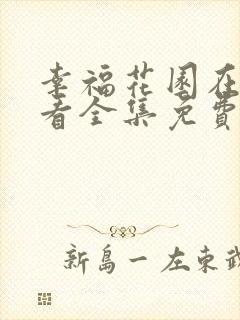 幸福花园在
看全集免费
新島一 左東武